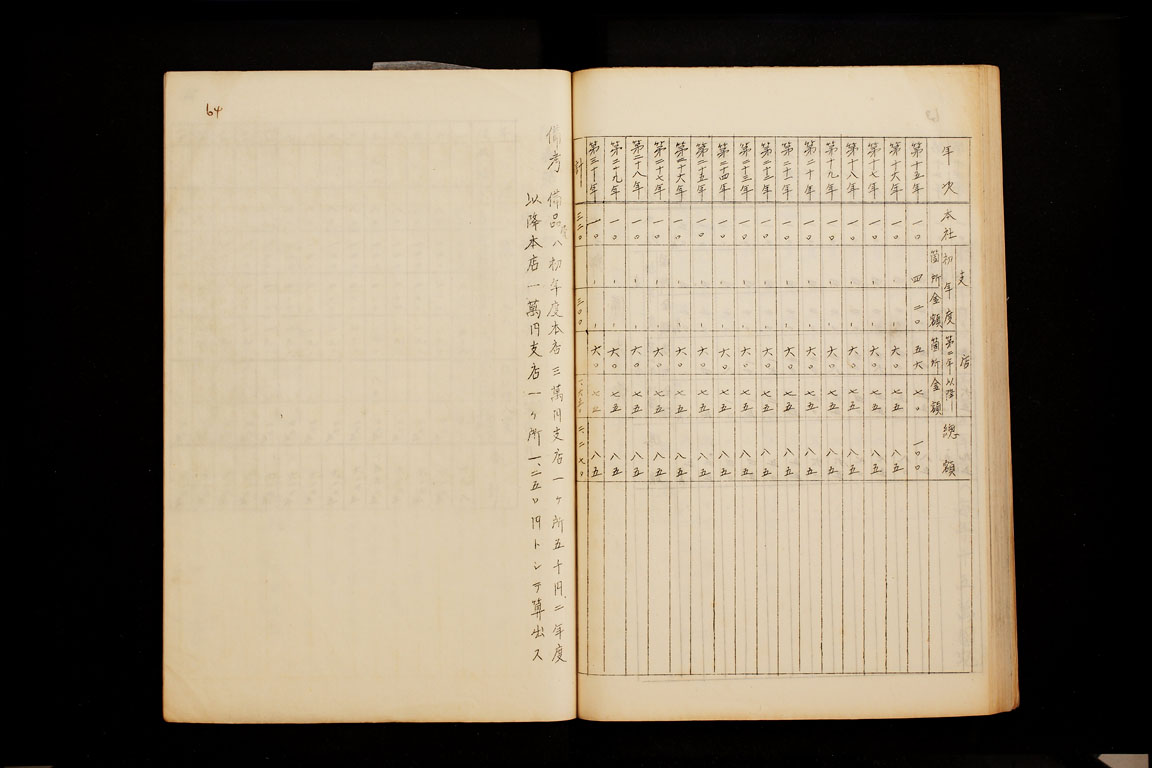 年次 本社 支店 初年度 箇所 金額 第二年以降 箇所 金額 總額
第十五年 一〇 四 二〇 五六 七〇 一〇〇
第十六年 一〇 、 、 六〇 七五 八五
第十七年 一〇 、 、 六〇 七五 八五
第十八年 一〇 、 、 六〇 七五 八五
第十九年 一〇 、 、 六〇 七五 八五
第二十年 一〇 、 、 六〇 七五 八五
第二十一年 一〇 、 、 六〇 七五 八五
第二十二年 一〇 、 、 六〇 七五 八五
第二十三年 一〇 、 、 六〇 七五 八五
第二十四年 一〇 、 、 六〇 七五 八五
第二十五年 一〇 、 、 六〇 七五 八五
第二十六年 一〇 、 、 六〇 七五 八五
第二十七年 一〇 、 、 六〇 七五 八五
第二十八年 一〇 、 、 六〇 七五 八五
第二十九年 一〇 、 、 六〇 七五 八五
第三十年 一〇 、 、 六〇 七五 八五
計 三二〇 三〇〇 一、六五〇 二、二七〇
備考 備品費ハ初年度本店三萬円支店一ヶ所五千円、二年度
以降本店一萬円支店一ヶ所一、二五〇円トシテ算出ス
64